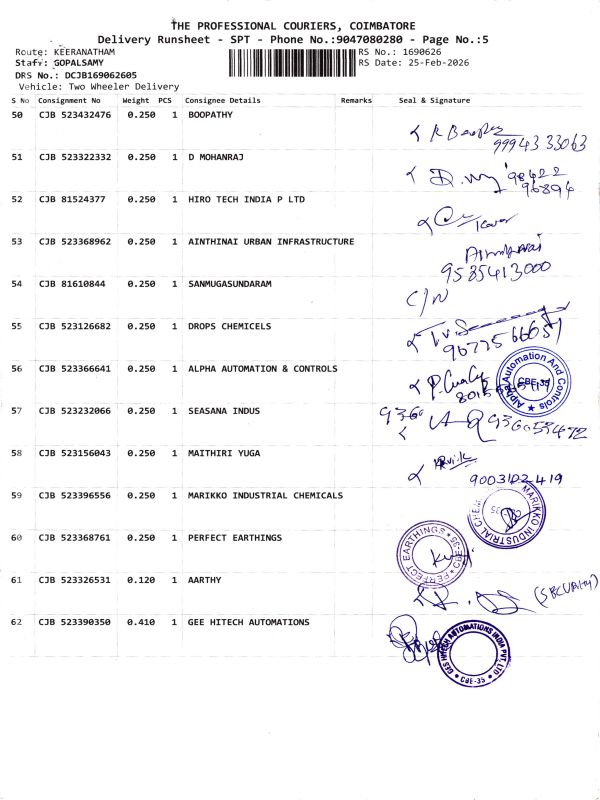 THE PROFESSIONAL COURIERS, COIMBATORE
Delivery Runsheet - SPT - Phone No.:9047080280 - Page No.:5
Route: KEERANATHAM RS No.: 1690626
Staff: GOPALSAMY RS Date: 25-Feb-2026
DRS No.: DCJB169062605
Vehicle: Two Wheeler Delivery
S No Consignment No Weight PCS Consignee Details Remarks Seal & Signature
50 CJB 523432476 0.250 1 BOOPATHY
99943 33063
51 CJB 523322332 0.250 1 D MOHANRAJ
98422
96894
52 CJB 81524377 0.250 1 HIRO TECH INDIA P LTD
53 CJB 523368962 0.250 1 AINTHINAI URBAN INFRASTRUCTURE
9585413000
54 CJB 81610844 0.250 1 SANMUGASUNDARAM
C/N
55 CJB 523126682 0.250 1 DROPS CHEMICELS
9677566651
56 CJB 523366641 0.250 1 ALPHA AUTOMATION & CONTROLS
Alpha Automation And Controls
CBE-35
57 CJB 523232066 0.250 1 SEASANA INDUS
58 CJB 523156043 0.250 1 MAITHIRI YUGA
9003102419
59 CJB 523396556 0.250 1 MARIKKO INDUSTRIAL CHEMICALS
MARIKKO INDUSTRIAL CHEM
60 CJB 523368761 0.250 1 PERFECT EARTHINGS
PERFECT EARTHINGS
CBE-35
61 CJB 523326531 0.120 1 AARTHY
(SECURITY)
62 CJB 523390350 0.410 1 GEE HITECH AUTOMATIONS
GEE HITECH AUTOMATIONS INDIA PVT. LTD
CBE-35